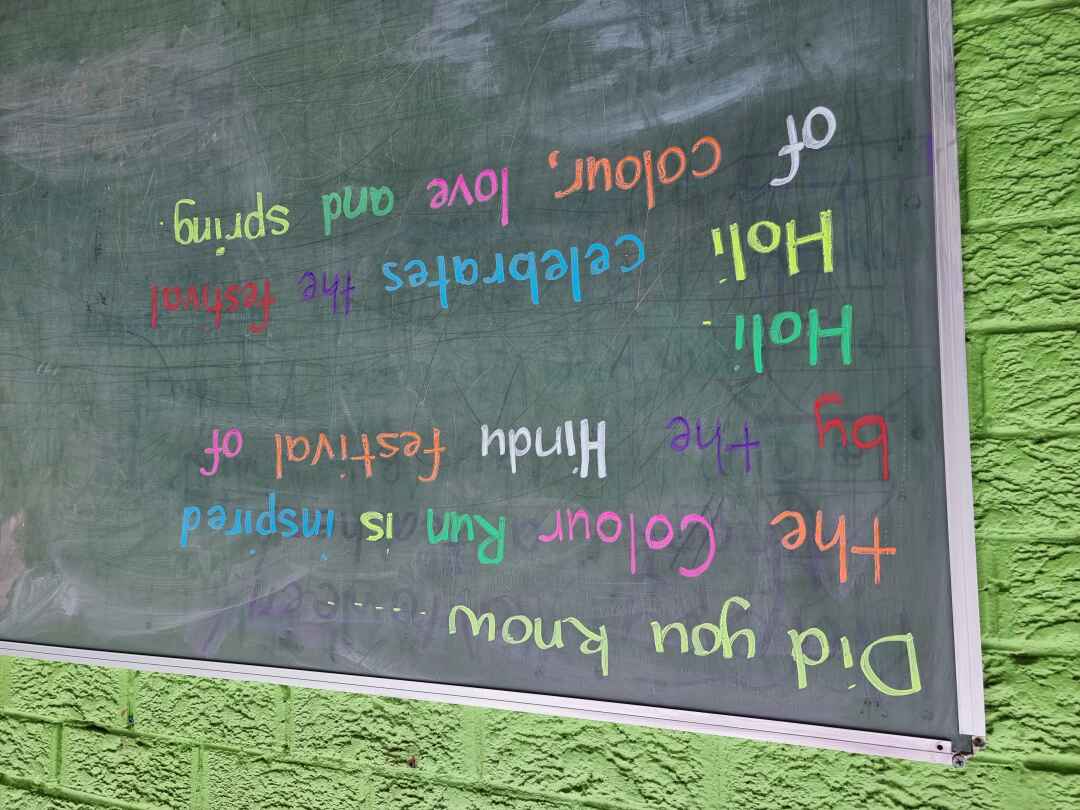 Did you know......
the Colour Run is inspired
by the Hindu festival of
Holi.
Holi celebrates the festival
of colour, love and spring.